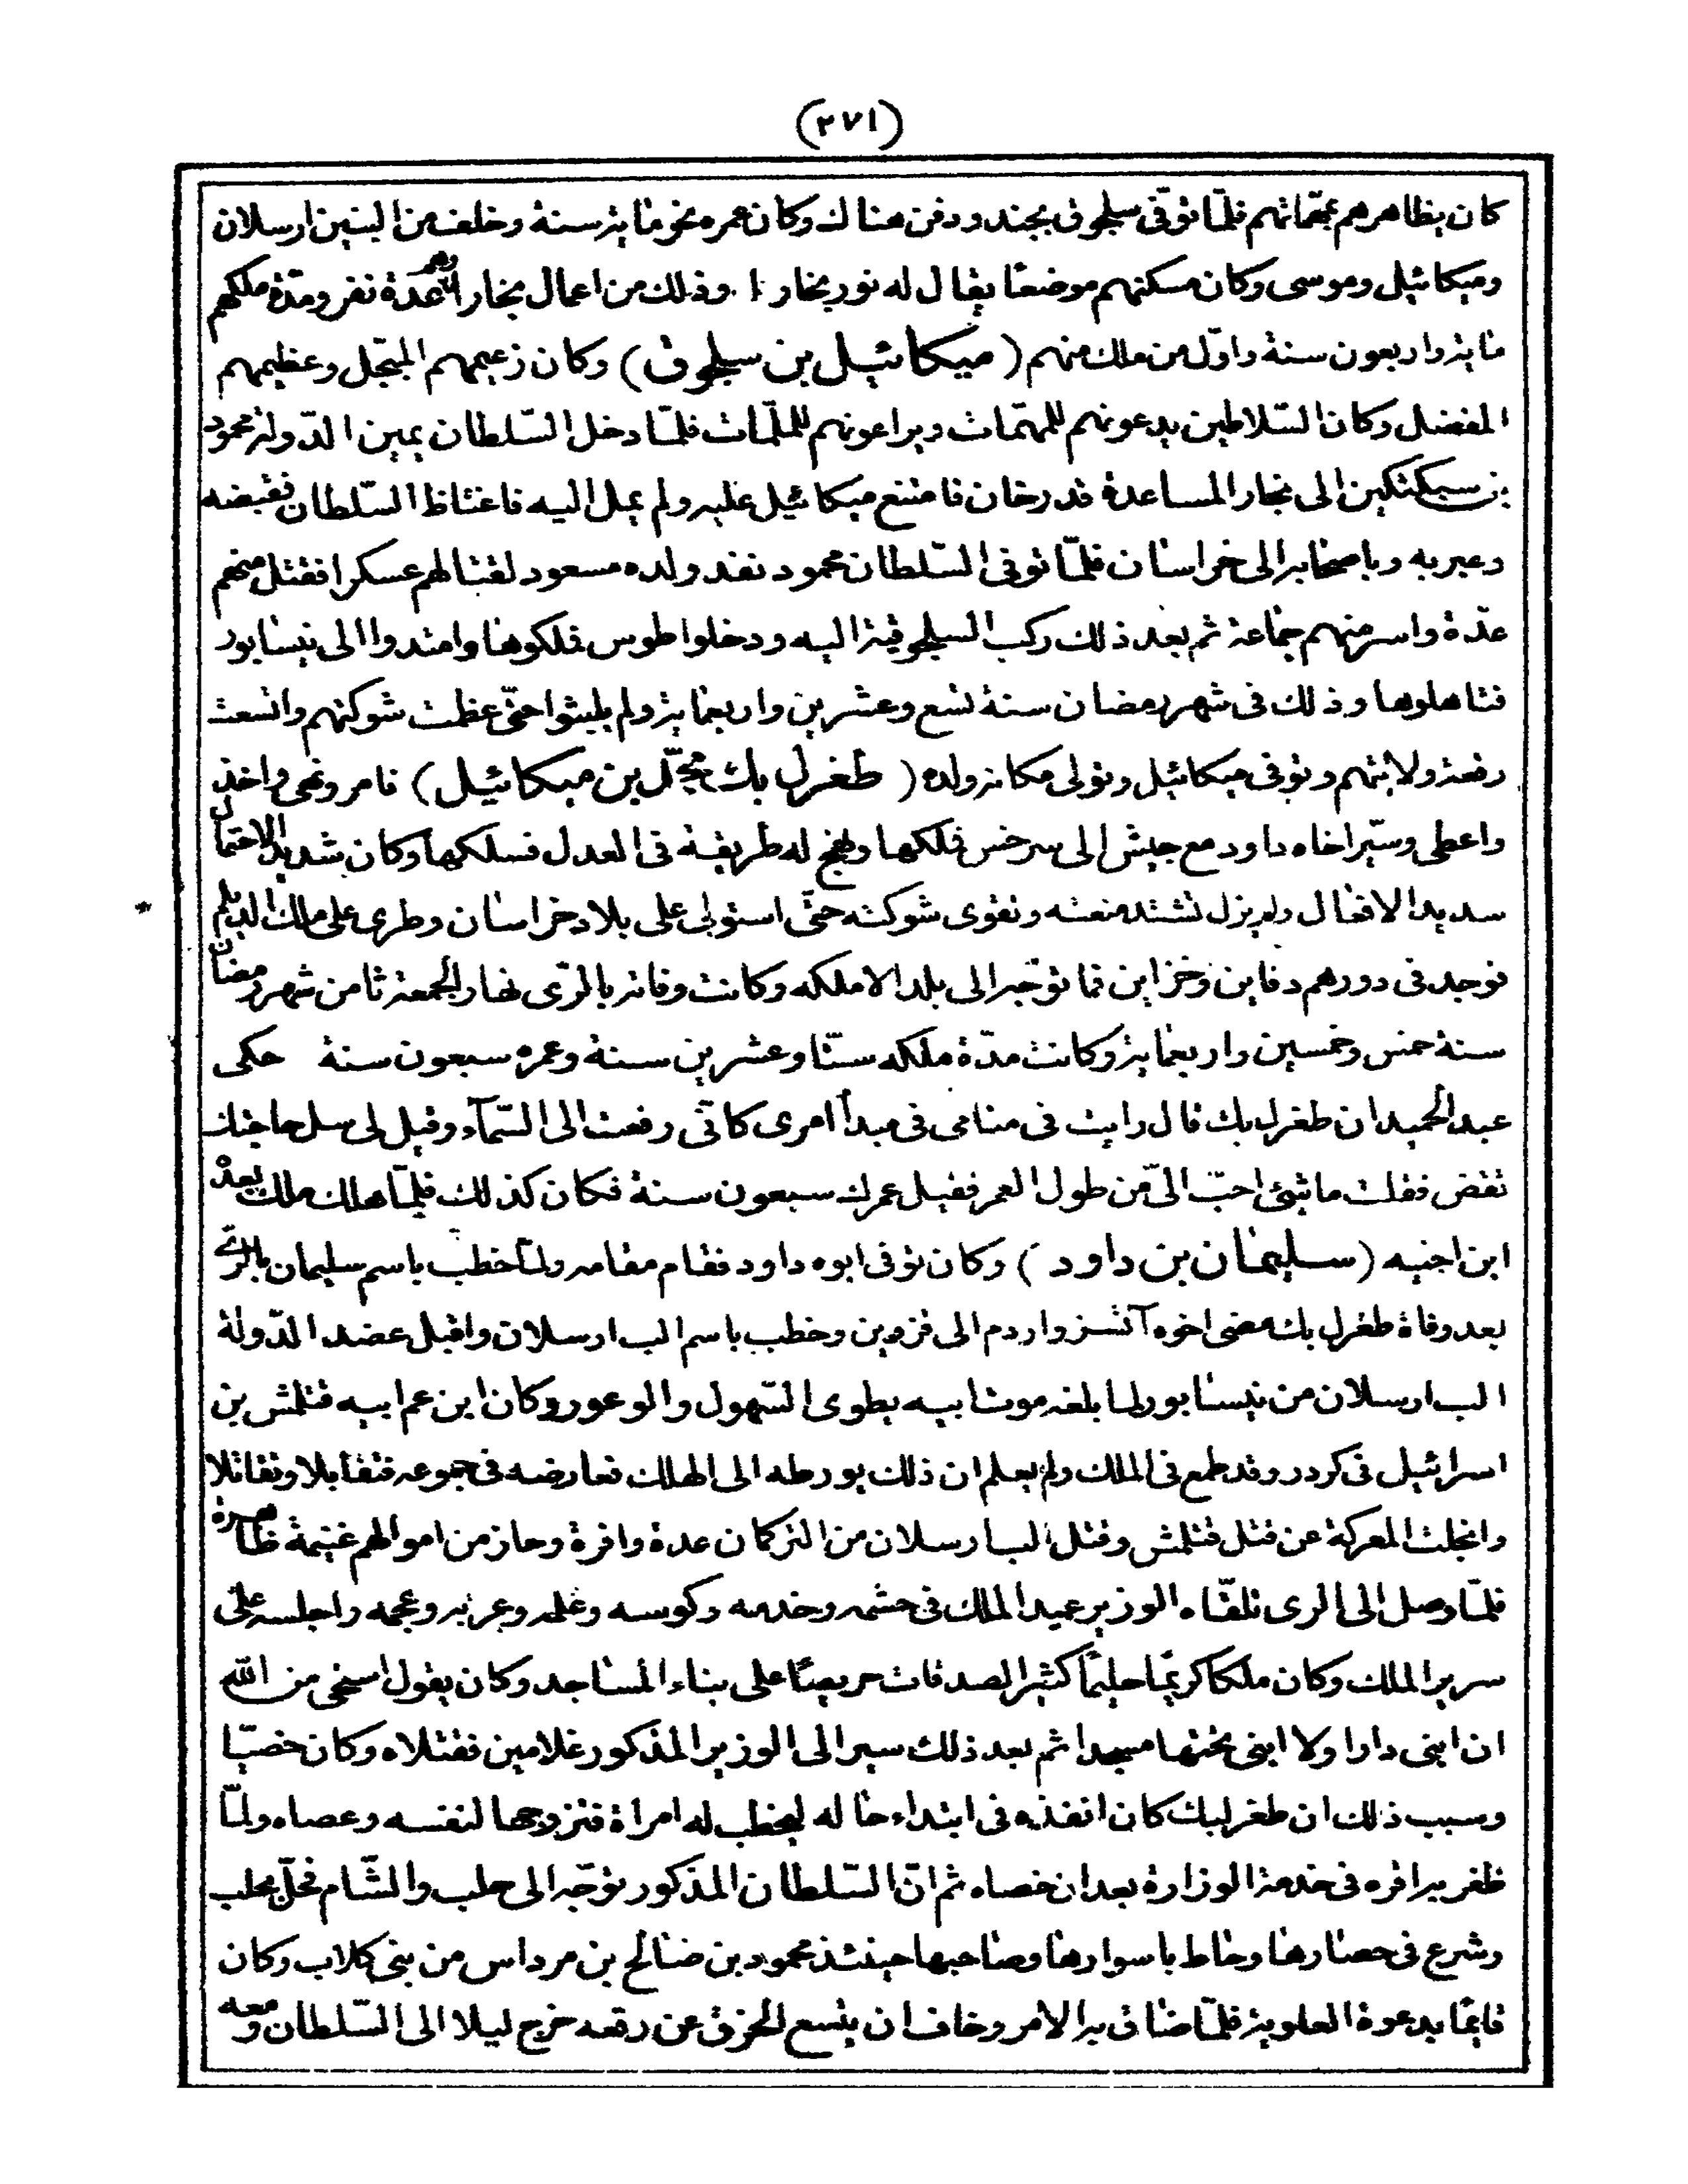 (٢٧١)
كان يظاهرهم بحماتهم فلما توفى سلجوق بجند ودفن هناك وكان عمره نحو مائة سنة وخلف من البنين ارسلان
وميكائيل وموسى وكان مسكنهم موضعا يقال له نور بخارا وذلك من اعمال بخارا وهم عدة نفر ومدة ملكهم
مائة واربعون سنة واول من ملك منهم (ميكائيل بن سلجوق) وكان زعيمهم المبجّل وعظيمهم
المفضل وكان السّلاطين يدعونهم للمهمات ويراعونهم للملمّات فلمّا دخل السّلطان يمين الدّولة محمود
بن سبكتكين الى بخارا لمساعدة قدرخان فامتنع ميكائيل عليه ولم يمل اليه فاغتاظ السّلطان فقبضه
وعبر به وباصحابه الى خراسان فلمّا توفى السّلطان محمود نفد ولده مسعود لقتالهم عسكرا فقتل منهم
عدّة واسر منهم جماعة ثم بعد ذلك ركب السلجوقية اليه ودخلوا طوس فملكوها وامتدوا الى نيسابور
فتاهلوها وذلك فى شهر رمضان سنة تسع وعشرين واربعمائة ولم يلبثوا حتى عظمت شوكتهم واتسعت
رقعة ولايتهم وتوفى ميكائيل وتولى مكانه ولده (طغرل بك محمّد بن ميكائيل) فامر ونهى واخذ
واعطى وسيّر اخاه داود مع جيش الى سرخس فملكها ونهج له طريقة فى العدل فسلكها وكان شديد الاحتمال
سديد الافعال ولم يزل تشتد منعته وتقوى شوكته حتى استولى على بلاد خراسان وطرى على ملك الديلم
فوجد فى دورهم دفاين وخزاين فما توجه الى بلد الا ملكه وكانت وفاته بالرّى نهار الجمعة ثامن شهر رمضان
سنة خمس وخمسين واربعمائة وكانت مدّة ملكه ستّا وعشرين سنة وعمره سبعون سنة حكى
عبد الحميد ان طغرل بك قال رايت فى منامى فى مبدأ امرى كانّى رفعت الى السّمآء وقيل لى سل حاجتك
تقض فقلت ما شئ احبّ الىّ من طول العمر فقيل عمرك سبعون سنة فكان كذلك فلمّا هلك ملك بعده
ابن اخيه (سليمان بن داود) وكان توفى ابوه داود فقام مقامه ولمّا خطب باسم سليمان بالرّى
بعد وفاة طغرل بك مضى اخوه آتسز واردم الى قزوين وخطب باسم الب ارسلان واقبل عضد الدّولة
الب ارسلان من نيسابور لما بلغه موت ابيه يطوى السّهول والوعور وكان ابن عم ابيه قتلمش بن
اسرائيل فى كردر وقد طمع فى الملك ولم يعلم ان ذلك يورطه الى الهلك فعارضه فى جموعه فتقابلا وتقاتلا
وانجلت المعركة عن قتل قتلمش وقتل الب ارسلان من التركمان عدة وافرة وحاز من اموالهم غنيمة ظاهرة
فلمّا وصل الى الرى تلقّاه الوزير عميد الملك فى حشمه وخدمه وكوسه وعلمه وعربه وعجمه واجلسه على
سرير الملك وكان ملكا كريمًا حليمًا كثير الصدقات حريصًا على بناء المساجد وكان يقول استحى من الله
ان ابنى دارا ولا ابنى بحنبها مسجدا ثم بعد ذلك سير الى الوزير المذكور غلامين فقتلاه وكان خصيّا
وسبب ذلك ان طغرلبك كان انفذه فى ابتداء حاله ليخطب له امراة فتزوجها لنفسه وعصاه ولمّا
ظفر به اقره فى خدمة الوزارة بعد ان خصاه ثم انّ السّلطان المذكور توجّه الى حلب والشّام فحلّ بحلب
وشرع فى حصارها وحاط باسوارها وصاحبها حينئذ محمود بن صالح بن مرداس من بنى كلاب وكان
قايمًا بدعوة العلوية فلمّا ضاق به الامر وخاف ان يتسع الخرق عن رقعه خرج ليلا الى السّلطان ومعه